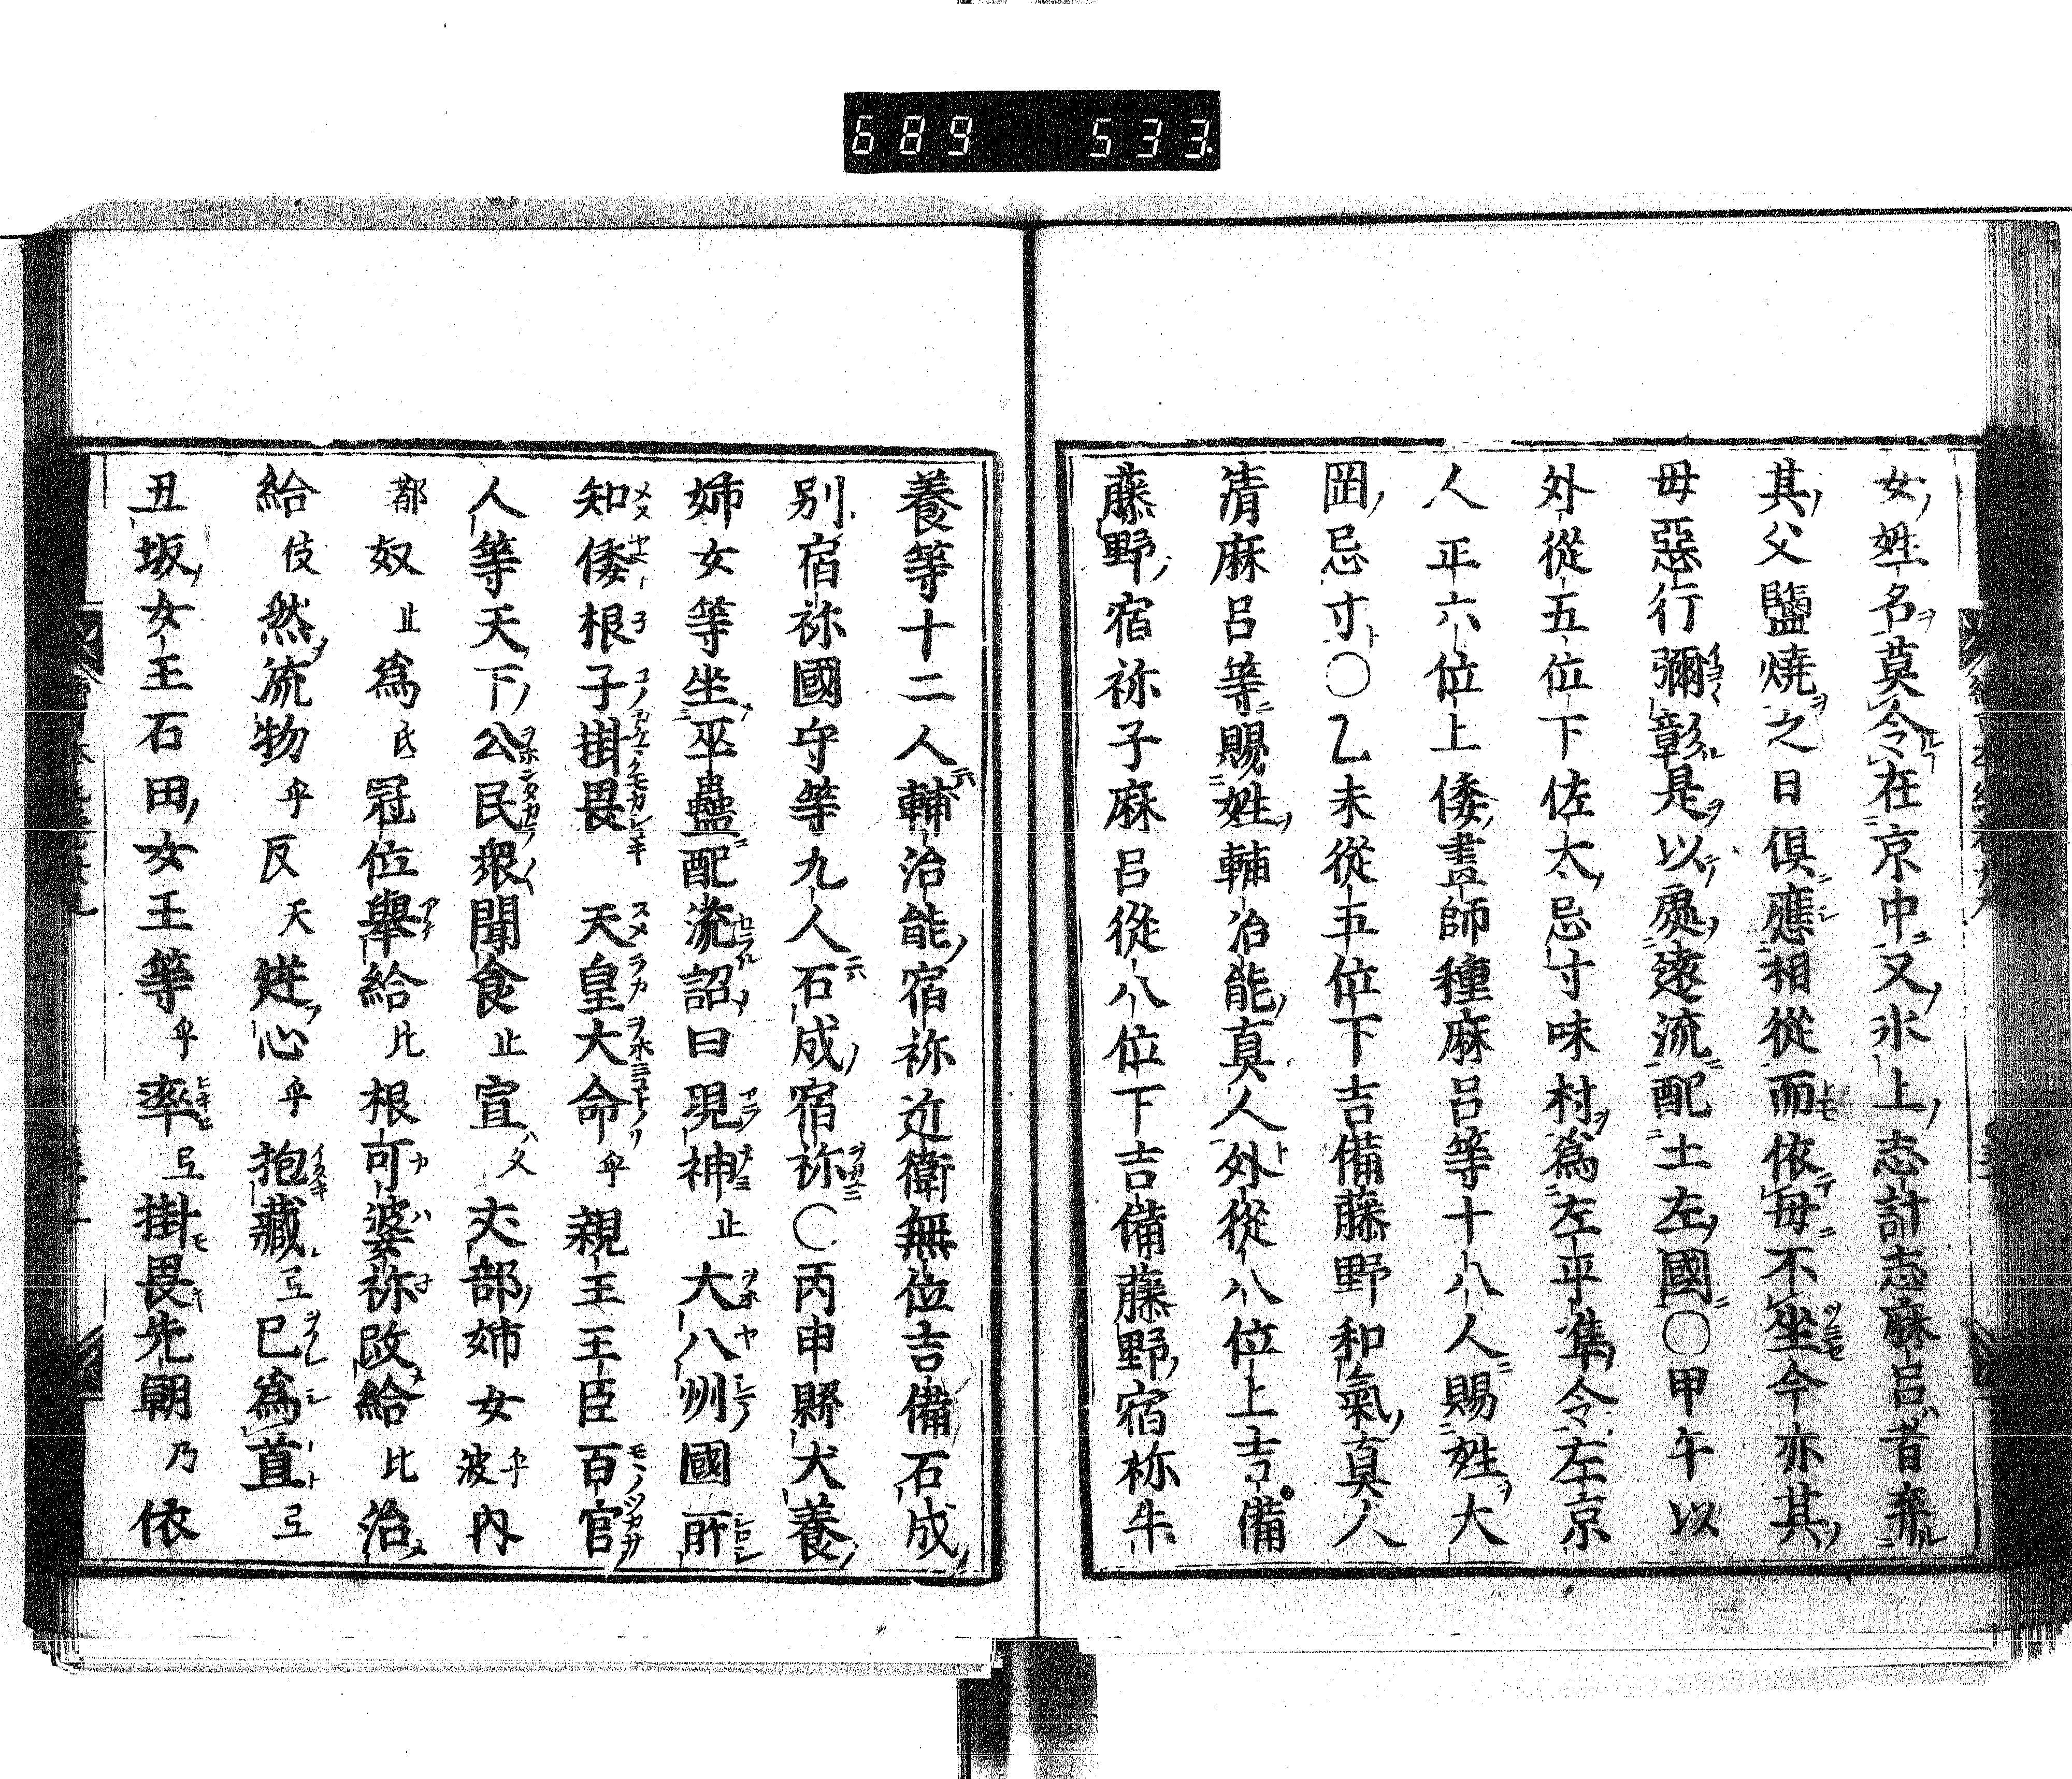 689 533
女姓名莫令在京中又氷上志計志麻呂者弃
其父鹽燒之日俱應相從而依毋不坐今亦其
毋惡行彌彰是以處遠流配土左國〇甲午以
外從五位下佐太忌寸味村爲左平準令左京
人正六位上倭畫師種麻呂等十八人賜姓大
岡忌寸〇乙未從五位下吉備藤野和氣真人
清麻呂等賜姓輔治能真人外從八位上吉備
藤野宿祢子麻呂從八位下吉備藤野宿祢牛
養等十二人輔治能宿祢近衛無位吉備石成
別宿祢國守等九人石成宿祢〇丙申縣犬養
姉女等坐巫蠱配流詔曰現神止大八州國所
知倭根子掛畏 天皇大命乎親王王臣百官
人等天下公民衆聞食止宣夂犬部姉女波乎内
都奴止爲氐冠位舉給比根可婆祢改給比治
給伎然流物乎反天逆心乎抱藏弖已爲首弖
丑坂女王石田女王等乎率弖掛畏先朝乃依